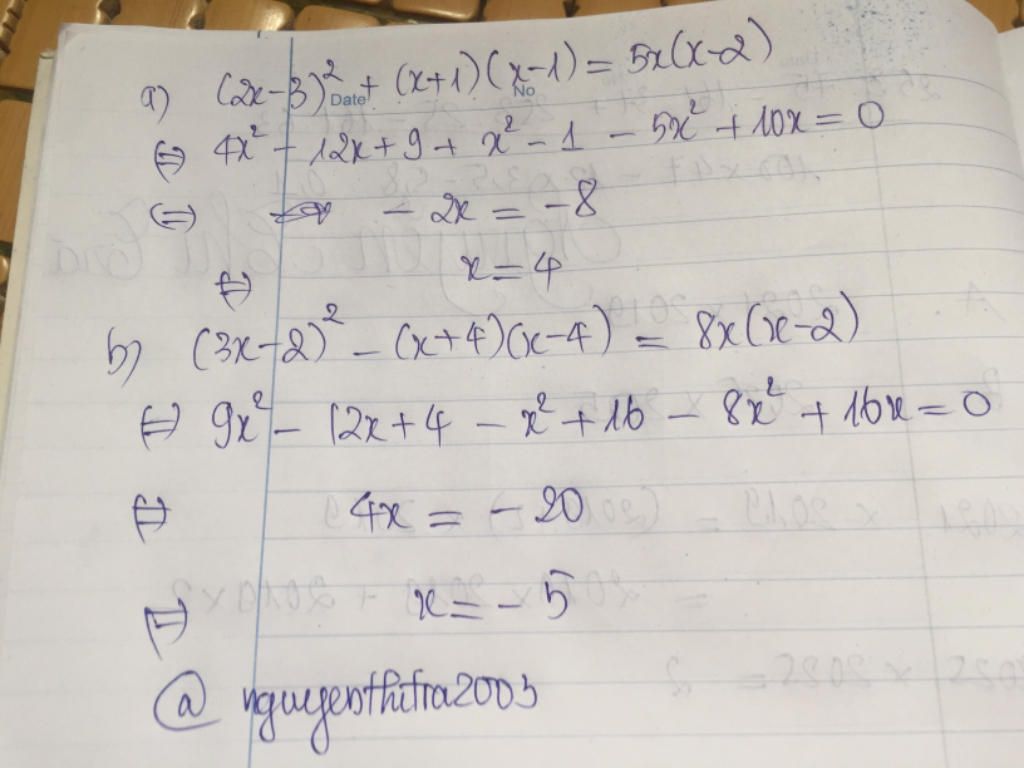 a) (2x-3)² + (x+1)(x-1) = 5x(x-2)
Date No
⇔ 4x² - 12x + 9 + x² - 1 - 5x² + 10x = 0
⇔ - 2x = -8
⇔ x = 4
b) (3x-2)² - (x+4)(x-4) = 8x(x-2)
⇔ 9x² - 12x + 4 - x² + 16 - 8x² + 16x = 0
⇔ 4x = - 20
⇔ x = - 5
@ nguyenthitra2003